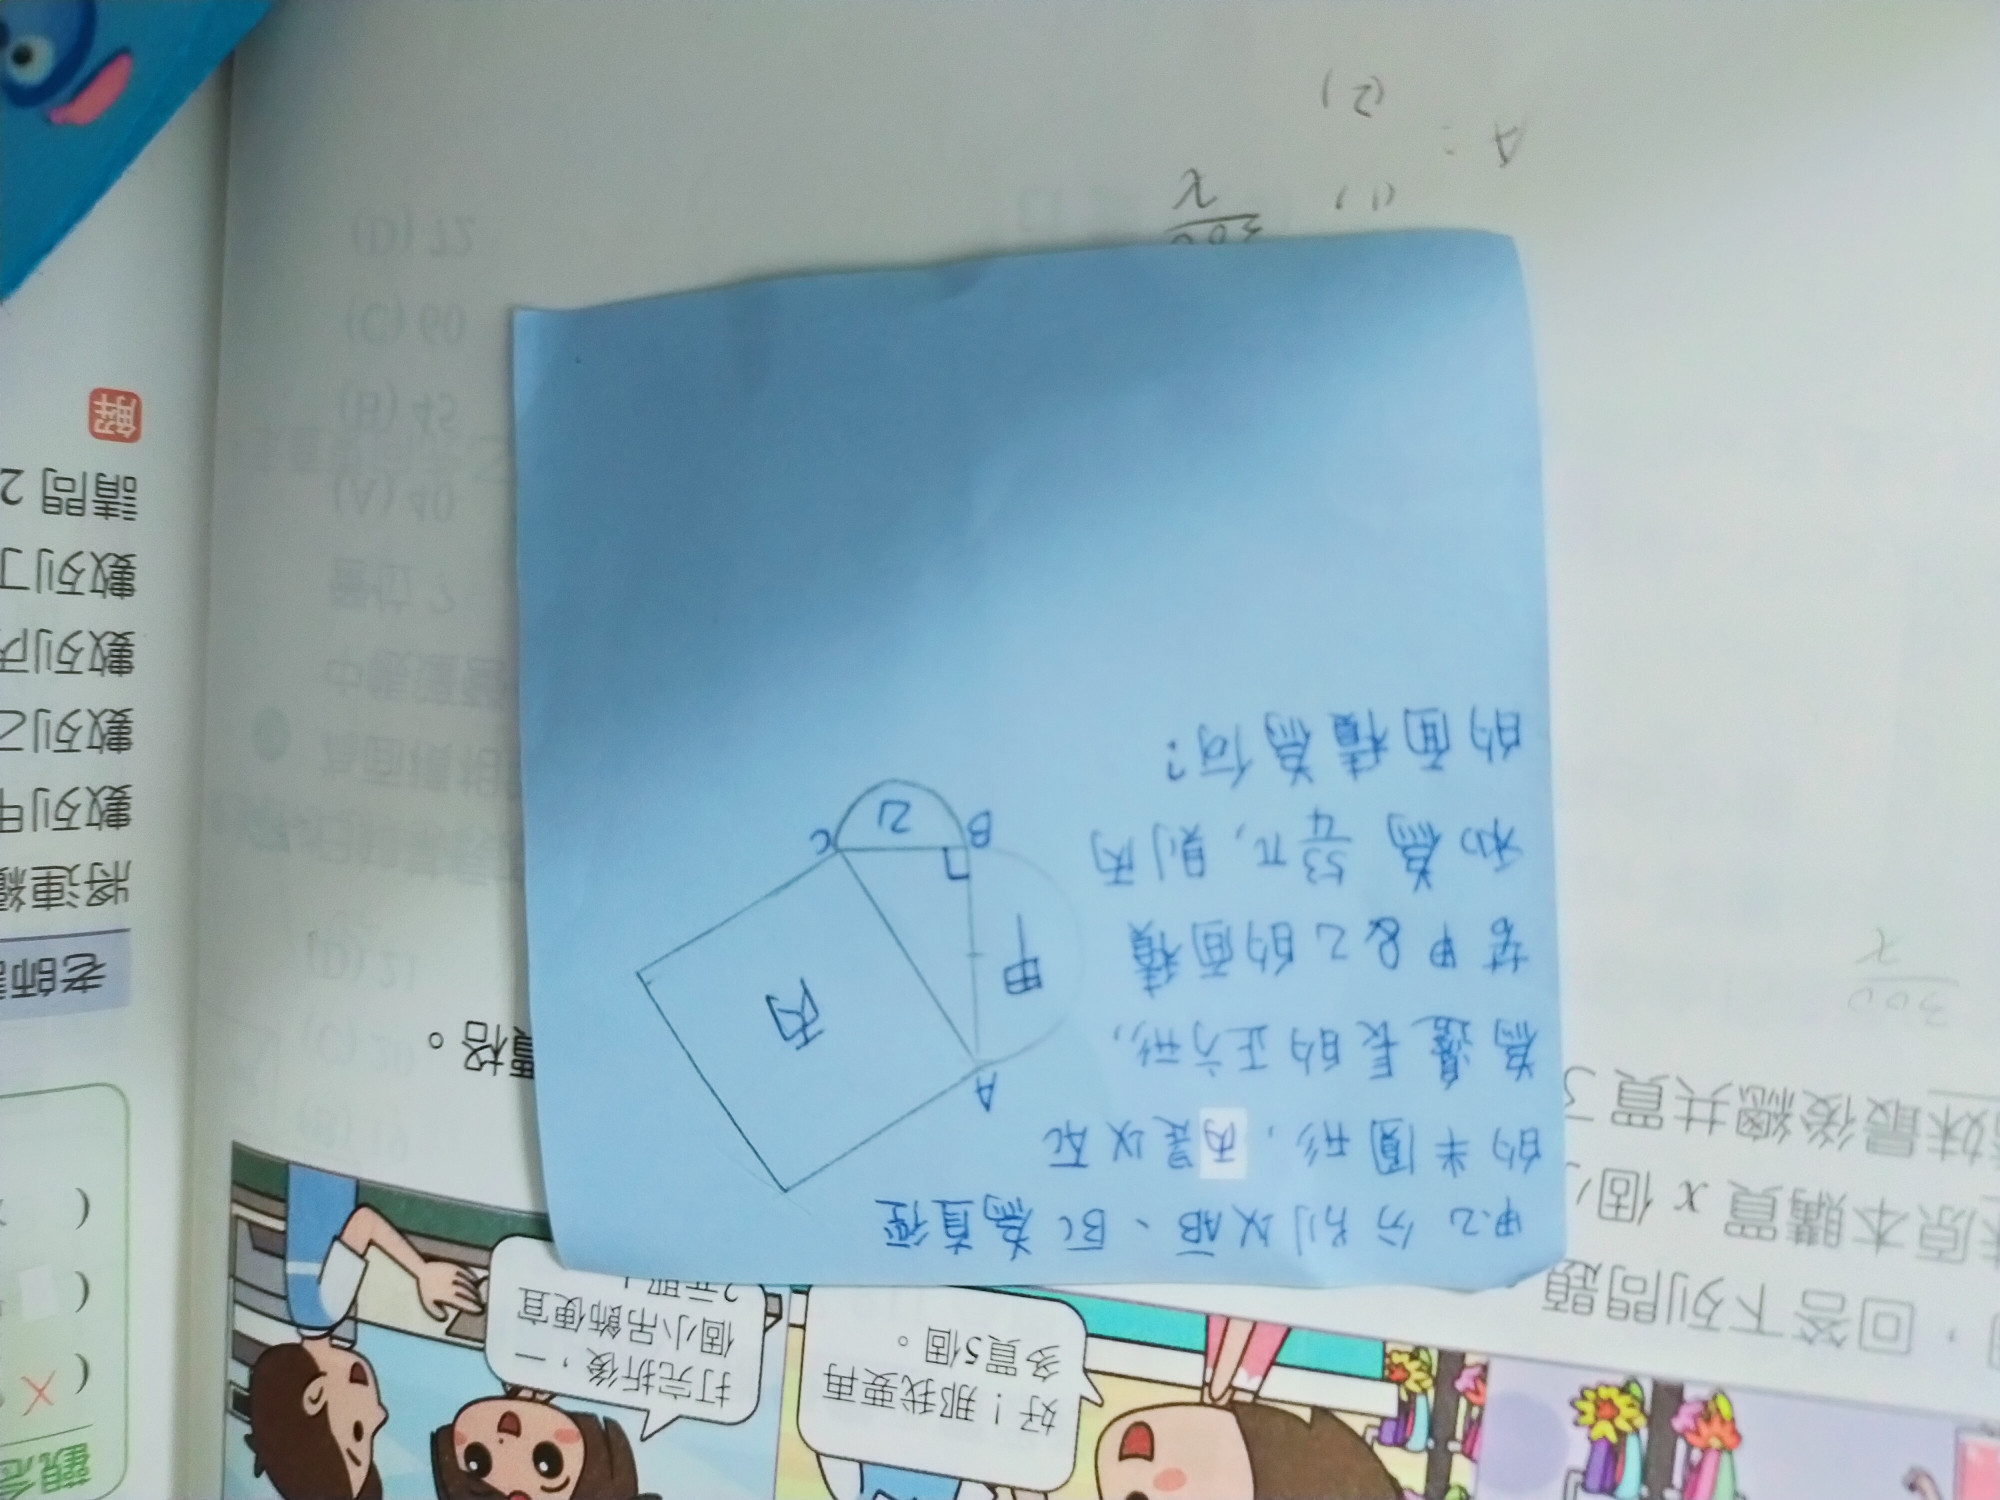 甲.乙 分別以AB、BC為直徑
的半圓形，丙是以AC
為邊長的正方形，
若甲&乙的面積
和為 53/4 π，則丙
的面積為何?
A
甲
丙
B
乙
C
，回答下列問題
原本購買 x 個小
妹最後總共買了
價格。
300
x
A：
(1)
300
x
(2)
好！那我要再
多買5個。
打完折後，一
個小吊飾便宜
觀念
(
×
(
(
老師
將連續
數列甲
數列乙
數列丙
數列丁
請問 2
解
(A) 40
(B) 45
(C) 60
(D) 72
(C) 20
(D) 21